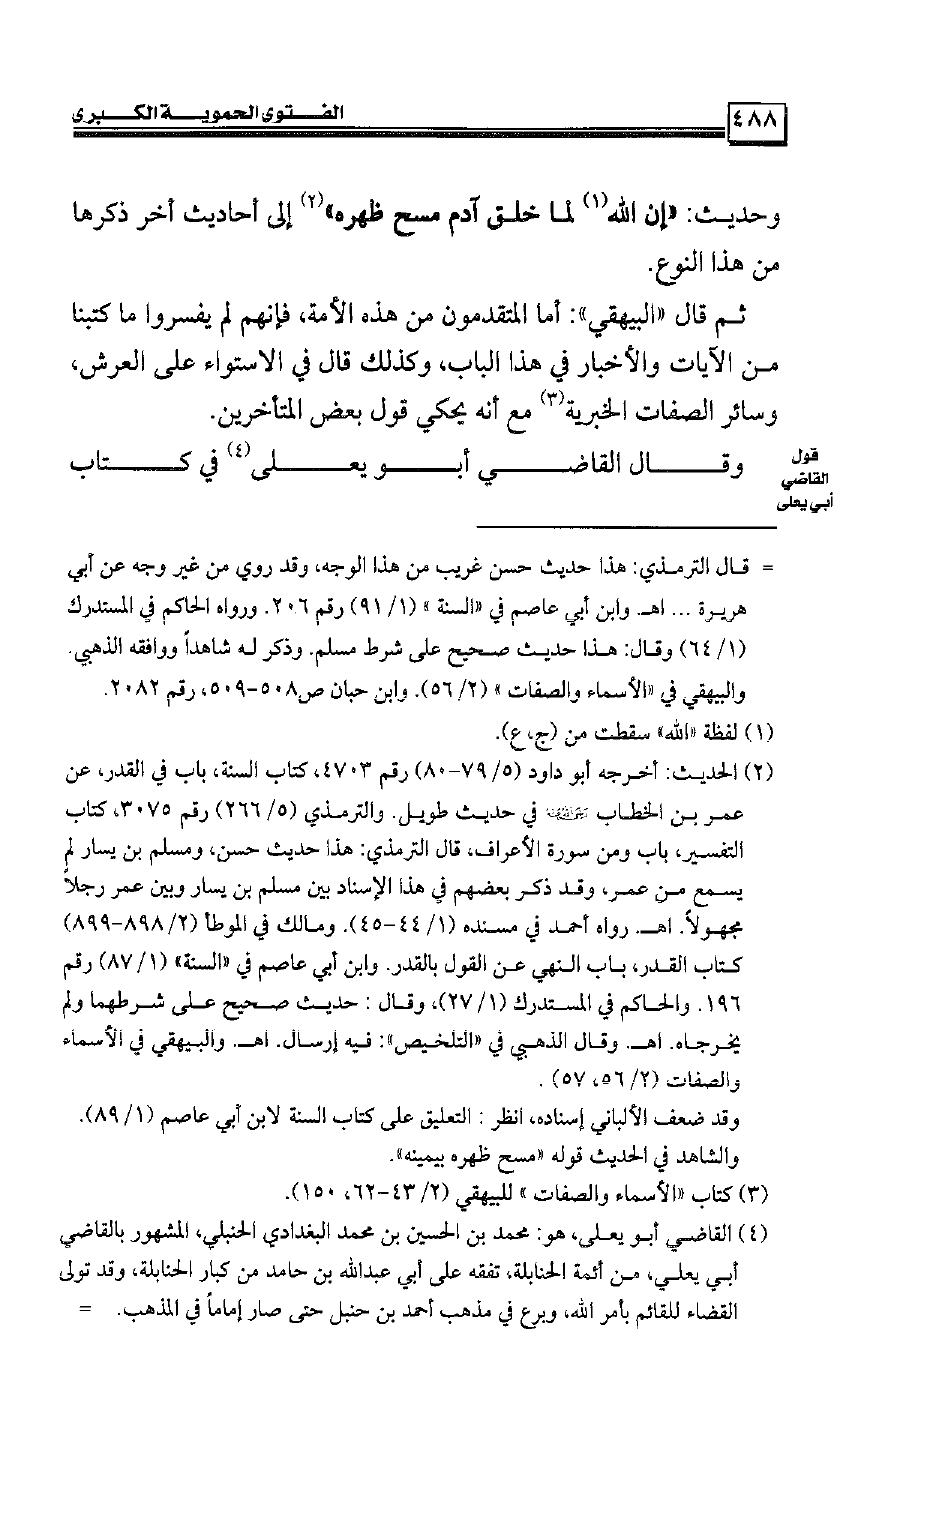 ٤٨٨
الفتوى الحموية الكبرى
وحديث: «إن الله(١) لما خلق آدم مسح ظهره»(٢) إلى أحاديث أخر ذكرها
من هذا النوع.
ثم قال «البيهقي»: أما المتقدمون من هذه الأمة، فإنهم لم يفسروا ما كتبنا
من الآيات والأخبار في هذا الباب، وكذلك قال في الاستواء على العرش،
وسائر الصفات الخبرية(٣) مع أنه يحكي قول بعض المتأخرين.
وقال القاضي أبو يعلى(٤) في كتاب
قول
القاضي
أبي يعلى
= قال الترمذي: هذا حديث حسن غريب من هذا الوجه، وقد روي من غير وجه عن أبي
هريرة ... اهـ. وابن أبي عاصم في «السنة» (١/ ٩١) رقم ٢٠٦. ورواه الحاكم في المستدرك
(١/ ٦٤) وقال: هذا حديث صحيح على شرط مسلم. وذكر له شاهداً ووافقه الذهبي.
والبيهقي في «الأسماء والصفات» (٢/ ٥٦). وابن حبان ص٥٠٨-٥٠٩، رقم ٢٠٨٢.
(١) لفظة «الله» سقطت من (ج، ع).
(٢) الحديث: أخرجه أبو داود (٥/ ٧٩-٨٠) رقم ٤٧٠٣، كتاب السنة، باب في القدر، عن
عمر بن الخطاب في حديث طويل. والترمذي (٥/ ٢٦٦) رقم ٣٠٧٥، كتاب
التفسير، باب ومن سورة الأعراف، قال الترمذي: هذا حديث حسن، ومسلم بن يسار لم
يسمع من عمر، وقد ذكر بعضهم في هذا الإسناد بين مسلم بن يسار وبين عمر رجلاً
مجهولاً. اهـ. رواه أحمد في مسنده (١/ ٤٤-٤٥). ومالك في الموطأ (٢/ ٨٩٨-٨٩٩)
كتاب القدر، باب النهي عن القول بالقدر. وابن أبي عاصم في «السنة» (١/ ٨٧) رقم
١٩٦. والحاكم في المستدرك (١/ ٢٧)، وقال: حديث صحيح على شرطهما ولم
يخرجاه. اهـ. وقال الذهبي في «التلخيص»: فيه إرسال. اهـ. والبيهقي في الأسماء
والصفات (٢/ ٥٦، ٥٧).
وقد ضعف الألباني إسناده، انظر: التعليق على كتاب السنة لابن أبي عاصم (١/ ٨٩).
والشاهد في الحديث قوله «مسح ظهره بيمينه».
(٣) كتاب «الأسماء والصفات» للبيهقي (٢/ ٤٣-٦٢، ١٥٠).
(٤) القاضي أبو يعلى، هو: محمد بن الحسين بن محمد البغدادي الحنبلي، المشهور بالقاضي
أبي يعلي، من أئمة الحنابلة، تفقه على أبي عبدالله بن حامد من كبار الحنابلة، وقد تولى
القضاء للقائم بأمر الله، وبرع في مذهب أحمد بن حنبل حتى صار إماماً في المذهب. =